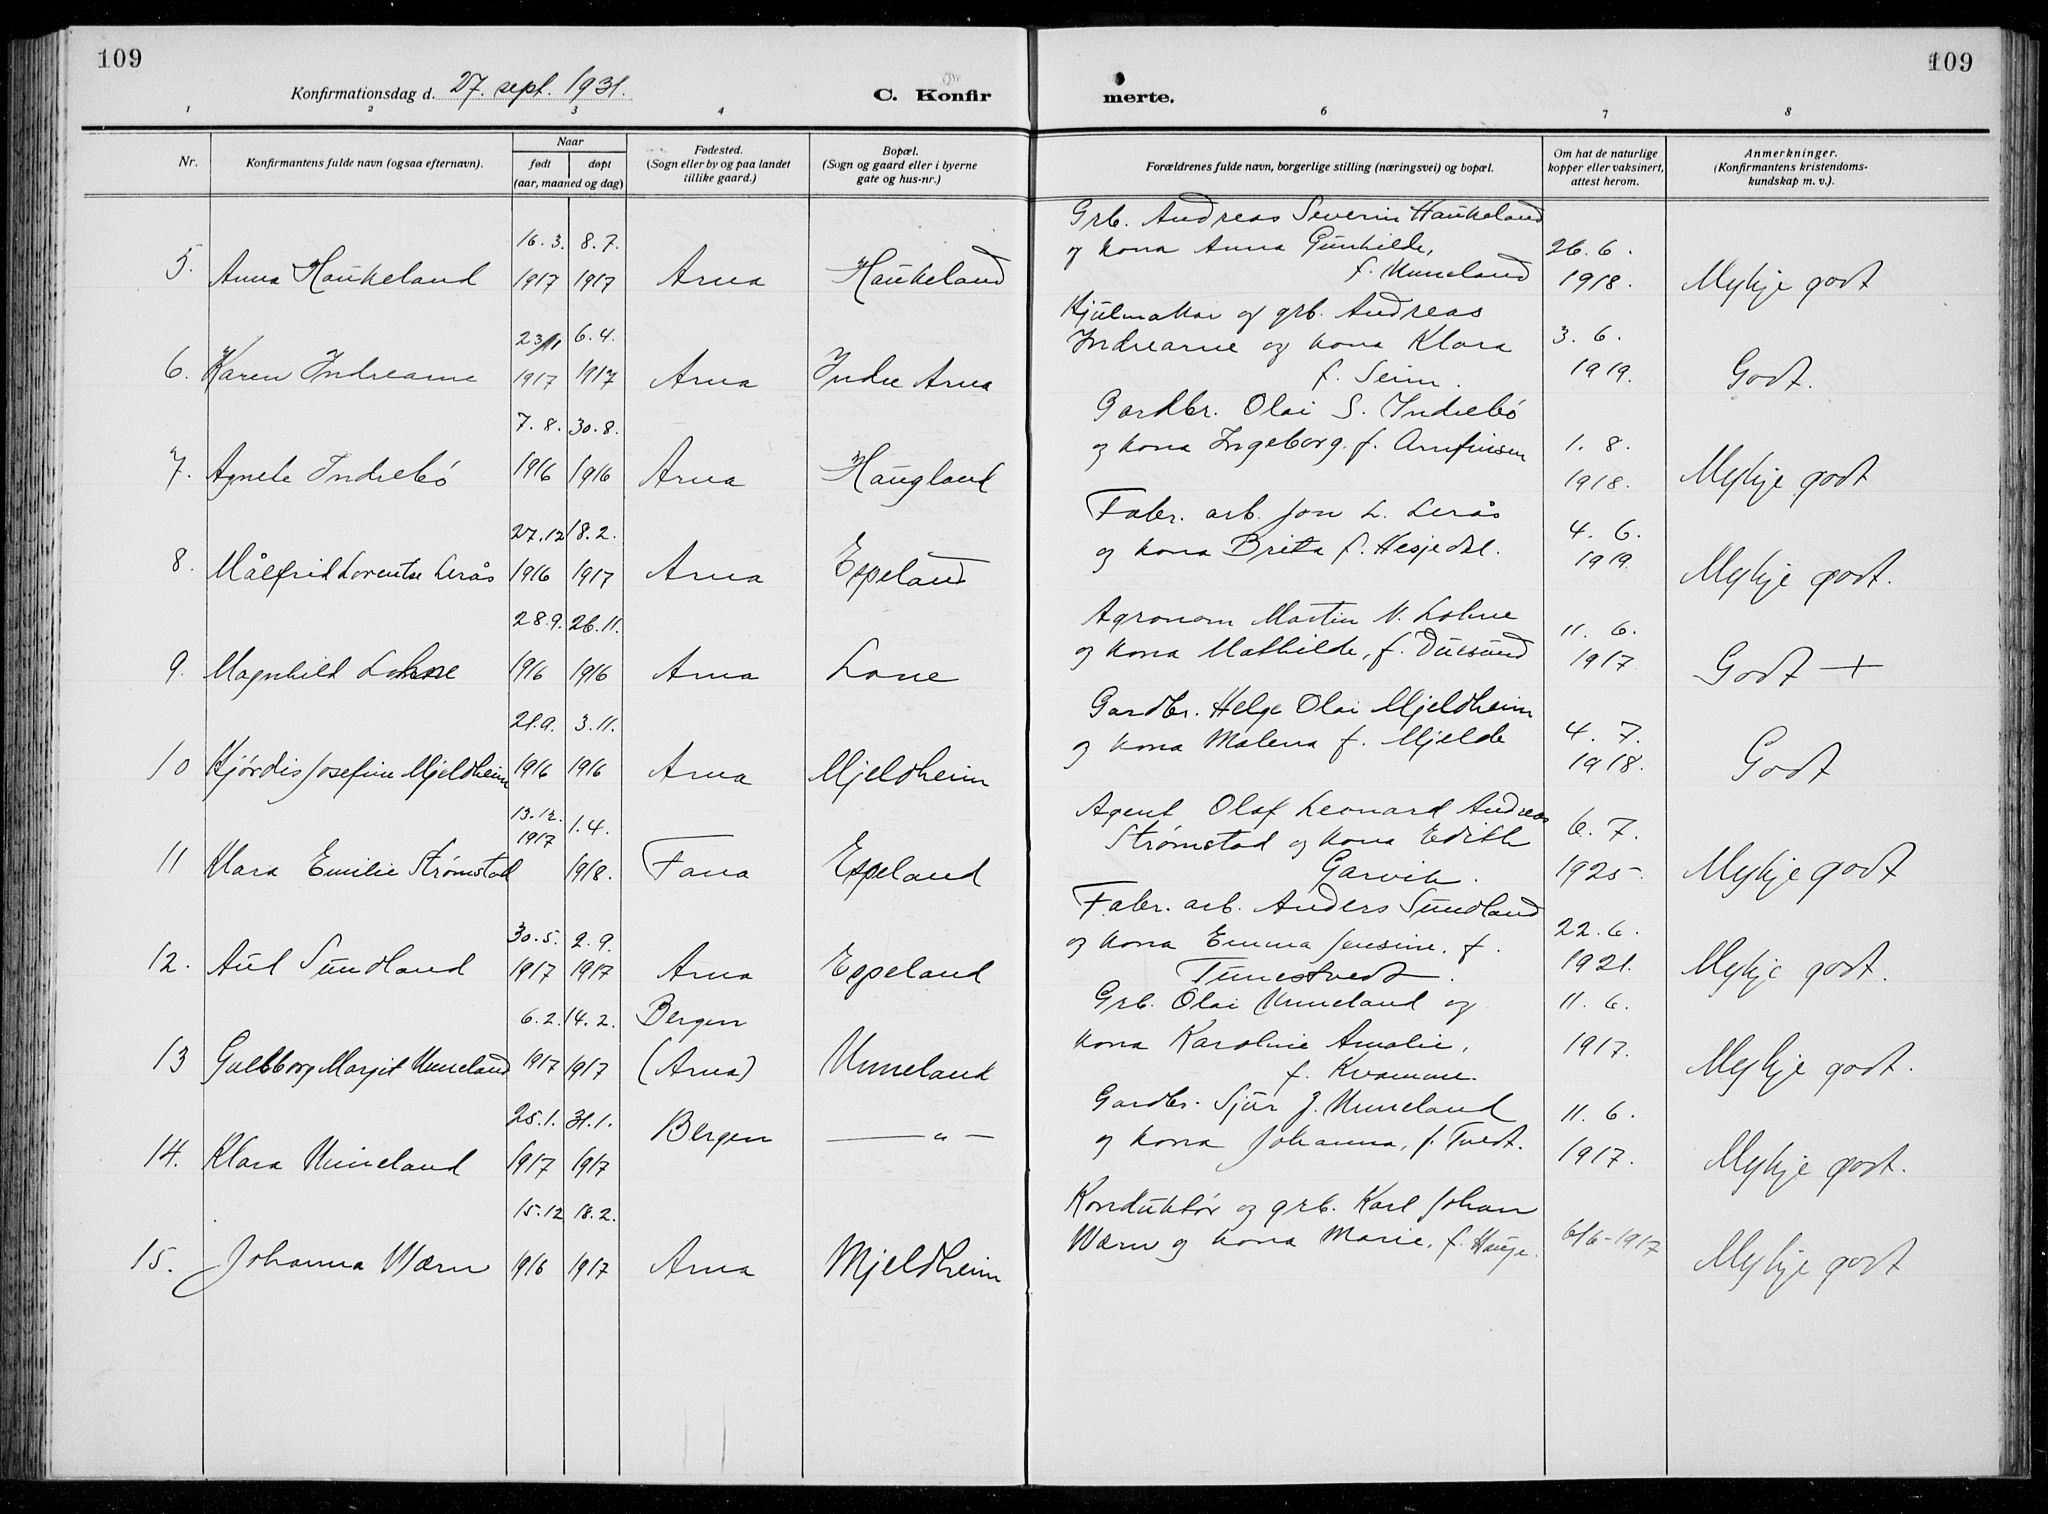 109
109
Konfirmationsdag d. 27. sept. 1931.
C. Konfir
merte.
1 2 3 4 6 7 8
Nr.
Konfirmantens fulde navn (ogsaa efternavn).
Naar
født
døpt
(aar, maaned og dag)
Fødested.
(Sogn eller by og paa landet
tillike gaard.)
Bopæl.
(Sogn og gaard eller i byerne
gate og hus-nr.)
Forældrenes fulde navn, borgerlige stilling (næringsvei) og bopæl.
Om hat de naturlige
kopper eller vaksinert,
attest herom.
Anmerkninger.
(Konfirmantens kristendoms-
kundskap m. v.).
5. Anna Haukeland 16.3. 1917 8.7. 1917 Arna Haukeland
Grb. Andreas Severin Haukeland
og kona Anna Gunhilde,
f. Unneland
26.6. 1918. Mykje godt
6. Karen Indrearne 23/11 1917 6.4. 1917 Arna Indre Arna
Hjulmakar og grb. Andreas
Indrearne og kona Klara
f. Seim.
3.6. 1919. Godt.
7. Agnete Indrebö 7.8. 1916 30.8. 1916 Arna Haugland
Gardbr. Olai S. Indrebö
og kona Ingeborg f. Arnfinsen
1.8. 1918. Mykje godt
8. Målfrid Lorentse Lerås 27.12 1916 18.2. 1917 Arna Espeland
Fabr. arb. Jon L. Lerås
og kona Brita f. Hesjedal.
4.6. 1919. Mykje godt.
9. Magnhild Lohne 28.9. 1916 26.11. 1916 Arna Lone
Agronom Martin N. Lohne
og kona Mathilde, f. Duesund
11.6. 1917 Godt +
10 Hjördis Josefine Mjeldheim 21.9. 1916 3.11. 1916 Arna Mjeldheim
Gardbr. Helge Olai Mjeldheim
og kona Malena f. Mjelde
4.7. 1918. Godt
11 Klara Emilie Strømstad 13.12. 1917 1.4. 1918. Fana Espeland
Agent Olaf Leonard Andreas
Strømstad og kona Edith
Garvik.
6.7. 1925 Mykje godt
12. Aud Sundland 30.5. 1917 2.9. 1917 Arna Espeland
Fabr. arb. Anders Sundland
og kona Emma Jensine, f.
Tunestvedt.
22.6. 1921. Mykje godt.
13 Gudborg Margit Unneland 6.2. 1917 14.2. 1917 Bergen (Arna) Unneland
Grb. Olai Unneland og
kona Karoline Amalie,
f. Kvamme.
11.6. 1917. Mykje godt.
14. Klara Unneland 25.1. 1917 31.1. 1917 Bergen — „ —
Gardbr. Sjur J. Unneland
og kona Johanna, f. Tvedt.
11.6. 1917. Mykje godt.
15. Johanna Wærn 15.12 1916 18.2. 1917 Arna Mjeldheim
Konduktør og grb. Karl Johan
Wærn og kona Marie, f. Hauge.
6/6-1917 Mykje godt